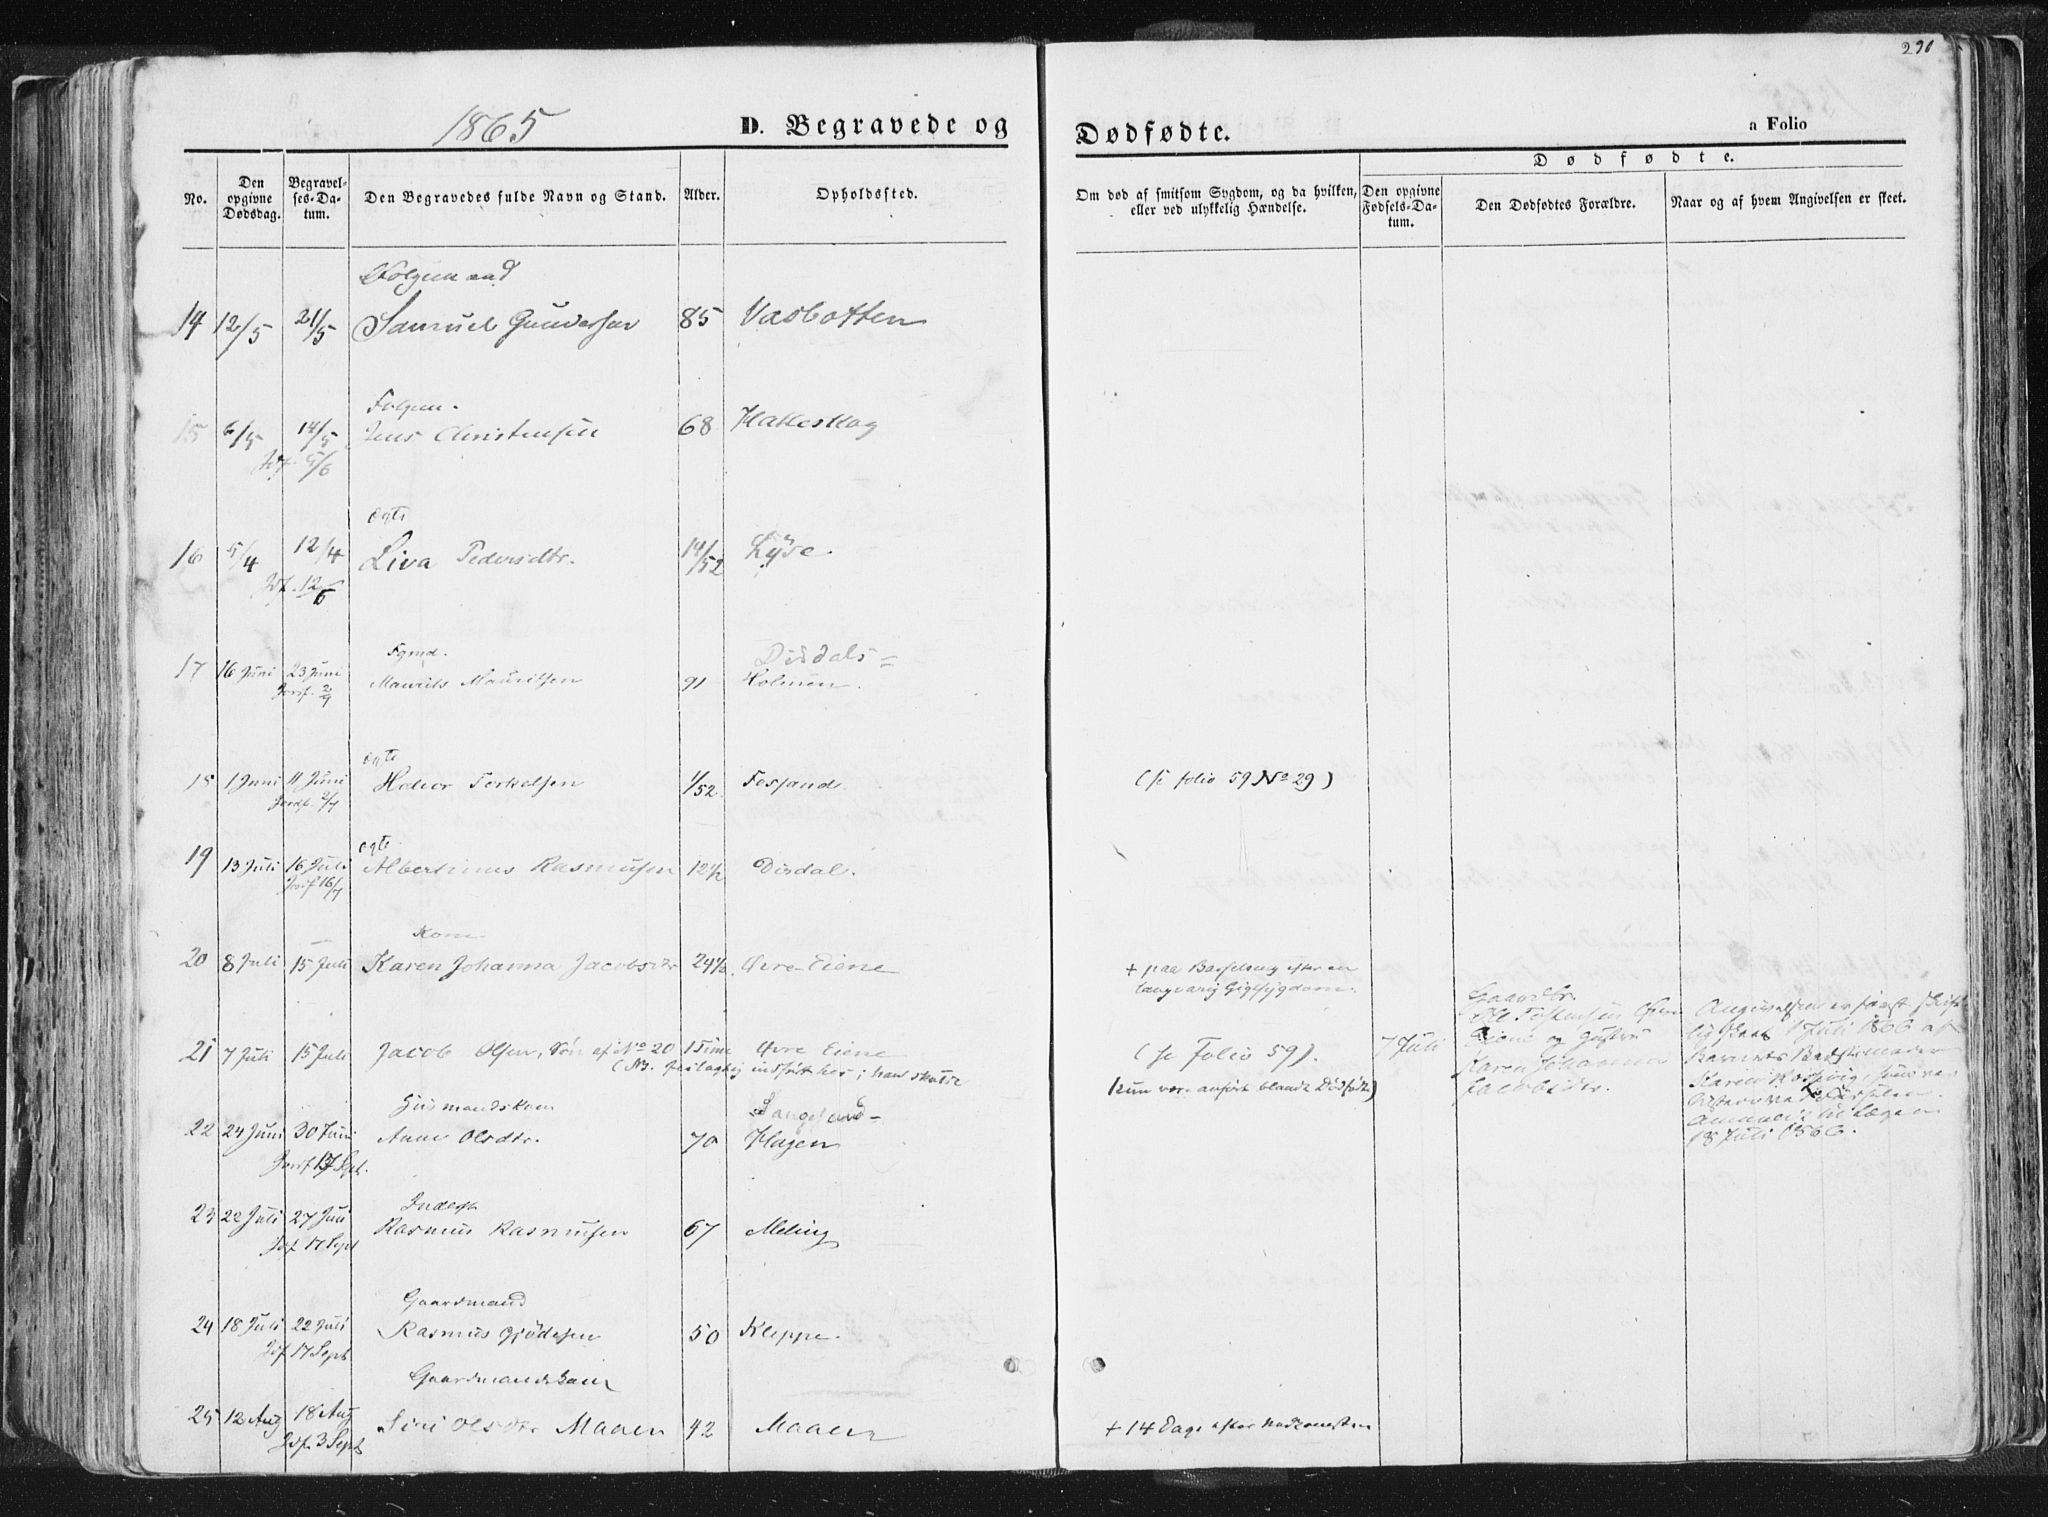 1865
D. Begravede og
Dødfødte.
a Folio
No.
Den opgivne Dødsdag.
Begravelses-Datum.
Den Begravedes fulde Navn og Stand.
Alder.
Opholdssted.
Om død af smitsom Sygdom, og da hvilken, eller ved ulykkelig Hændelse.
Dødfødte.
Den opgivne Fødsels-Datum.
Den Dødfødtes Forældre.
Naar og af hvem Angivelsen er skeet.
Folgemand
14 12/5 21/5 Samuel Gundersen 85 Vasbotten
Folgem.
15 6/5 14/5 Jens Christensen 68 Halleskog
Jdf. 5/6
Ogte
16 5/4 12/4 Liva Pedersdtr. 14/52 Lyse
Jdf. 12/6
Fgmd. Dirdals=
17 16 Juni 23 Juni Maurits Mauritsen 91 Holmen.
Jordf. 2/9
Ogte
18 1 Juni 11 Juni Halvor Torkelsen 1/52 Fosssand. (se folio 59 No 29)
Jordf. 2/7
Ogte
19 13 Juli 16 Juli Albertinus Rasmussen 12½ Dirdal.
Jordf 16/7
Kone
20 8 Juli 15 Juli Karen Johanna Jacobsdtr 24½ Øvre Eiene + paa Barselseng efter en
langvarig Gigtsygdom.
21 7 Juli 15 Juli Jacob Olsen, Søn af No 20 1 Time Øvre Eiene (se Folio 59). 7 Juli
(NB. feilagtig indført her; han skulde
kun være anført blandt Dødfødte)
Gaardbr.
Ole Tostensen
Eiene og Hustru
Karen Johanna
Jacobsdtr.
Angivelsen er først skrift
lig skeet 1 Juli 1866 af
Barnets
18 Juli 1866.
Husmandskone Langesand-
22 24 Juni 30 Juni Anne Olsdtr. 70 Hagen
Jordf 17 Sept.
Inderst
23 22 Juli 27 Juli Rasmus Rasmussen 67 Meling
Jdf 17 Sept
Gaardmand
24 18 Juli 22 Juli Rasmus Gjødesen 50 Kleppe.
Jdf 17 Sept
Gaardmandskone
25 12 Aug 18 Aug Siri Olsdtr Maaen 42 Maaen + 14 Dage efter Nedkomsten
Jdf. 3 Sept